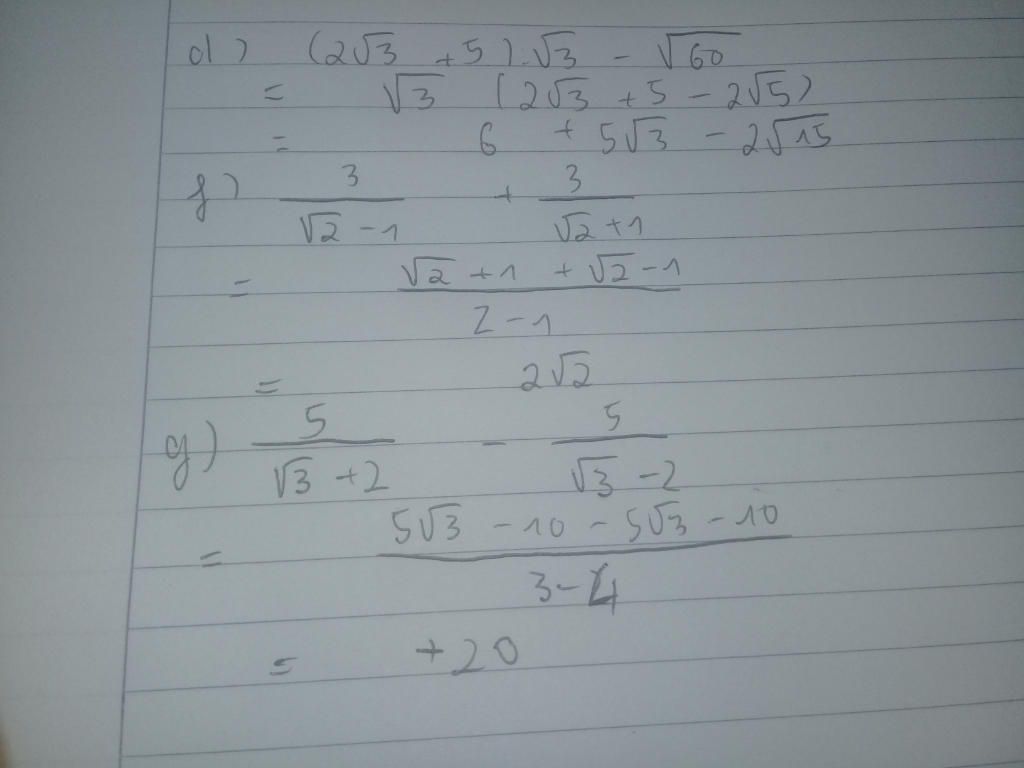 d) (2√3 + 5).√3 - √60
= √3 (2√3 + 5 - 2√5)
= 6 + 5√3 - 2√15
f) 3/(√2 - 1) + 3/(√2 + 1)
= (√2 + 1 + √2 - 1)/(2 - 1)
= 2√2
g) 5/(√3 + 2) - 5/(√3 - 2)
= (5√3 - 10 - 5√3 - 10)/(3 - 4)
= +20